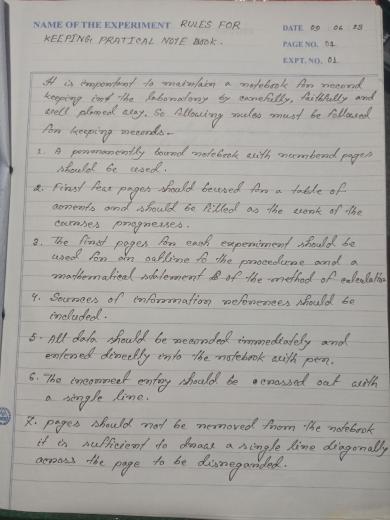 NAME OF THE EXPERIMENT RULES FOR
KEEPING PRATICAL NOTE BOOK.
DATE 09 06 23
PAGE NO. 01
EXPT. NO. 01
It is important to maintain a notebook for record
keeping in the laboratory by carefully, faithfully and
well planed way. So Allowing rules must be followed
for keeping records-
1. A permanently bound notebook with numbered pages
should be used.
2. First few pages should be used for a table of
and should be filled as the work of the
courses progresses.
3. The first pages for each experiment should be
used for an outline to the procedure and a
mathematical statement of the method of calculation
4. Sources of information references should be
included.
5. All data should be recorded immediately and
entered directly into the notebook with pen.
6. The incorrect entry should be crossed out with
a single line.
7. pages should not be removed from the notebook
it is sufficient to draw a single line diagonally
across the page to be disregarded.